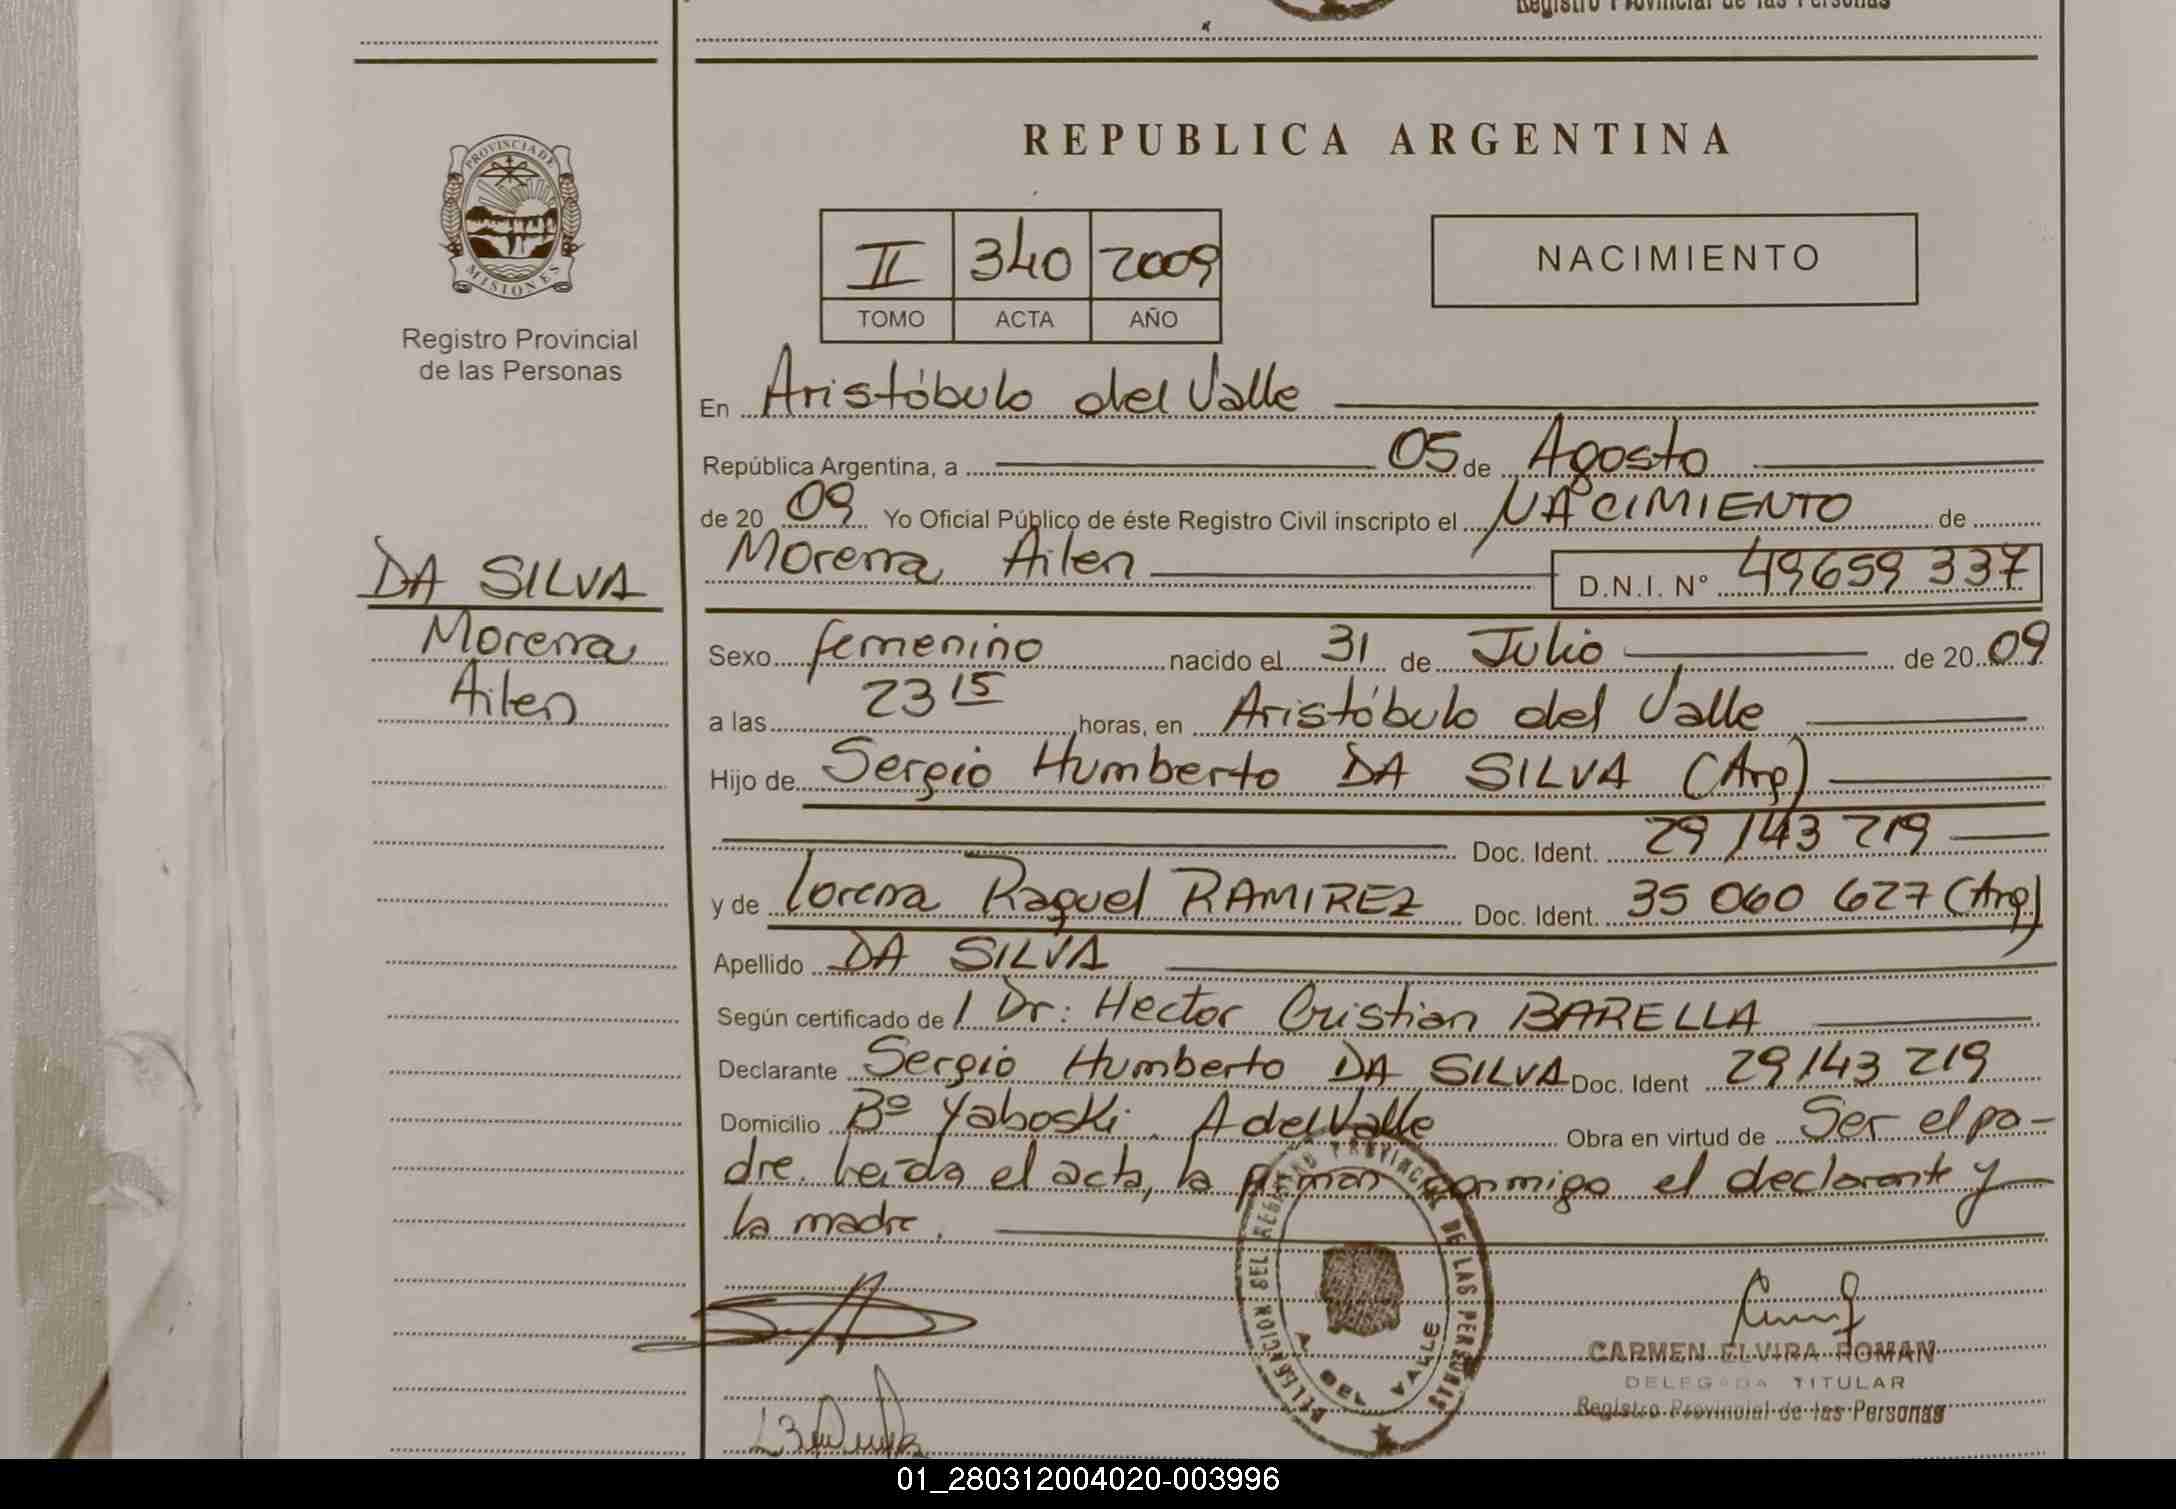 Registro Provincial de las Personas
REPUBLICA ARGENTINA
PROVINCIA DE
MISIONES
Registro Provincial
de las Personas
II 340 2009
TOMO ACTA AÑO
NACIMIENTO
En Aristóbulo del Valle
República Argentina, a 05 de Agosto
de 20 09 Yo Oficial Público de éste Registro Civil inscripto el NACIMIENTO de
Morena Ailen D.N.I. N° 49659 337
DA SILVA
Morena
Ailen
Sexo femenino nacido el 31 de Julio de 20 09
a las 23 15 horas, en Aristóbulo del Valle
Hijo de Sergio Humberto DA SILVA (Arg)
Doc. Ident. 29 143 219
y de Lorena Raquel RAMIREZ Doc. Ident. 35 060 627 (Arg)
Apellido DA SILVA
Según certificado de / Dr: Hector Cristian BARELLA
Declarante Sergio Humberto DA SILVA Doc. Ident 29 143 219
Domicilio Bº Yaboski. A del Valle Obra en virtud de Ser el pa-
dre. Leída el acta, la firman conmigo el declarante y
la madre.
DELEGACION DEL REGISTRO PROVINCIAL DE LAS PERSONAS
A. DEL VALLE
CARMEN ELVIRA ROMAN
DELEGADA TITULAR
Registro Provincial de las Personas
01_280312004020-003996